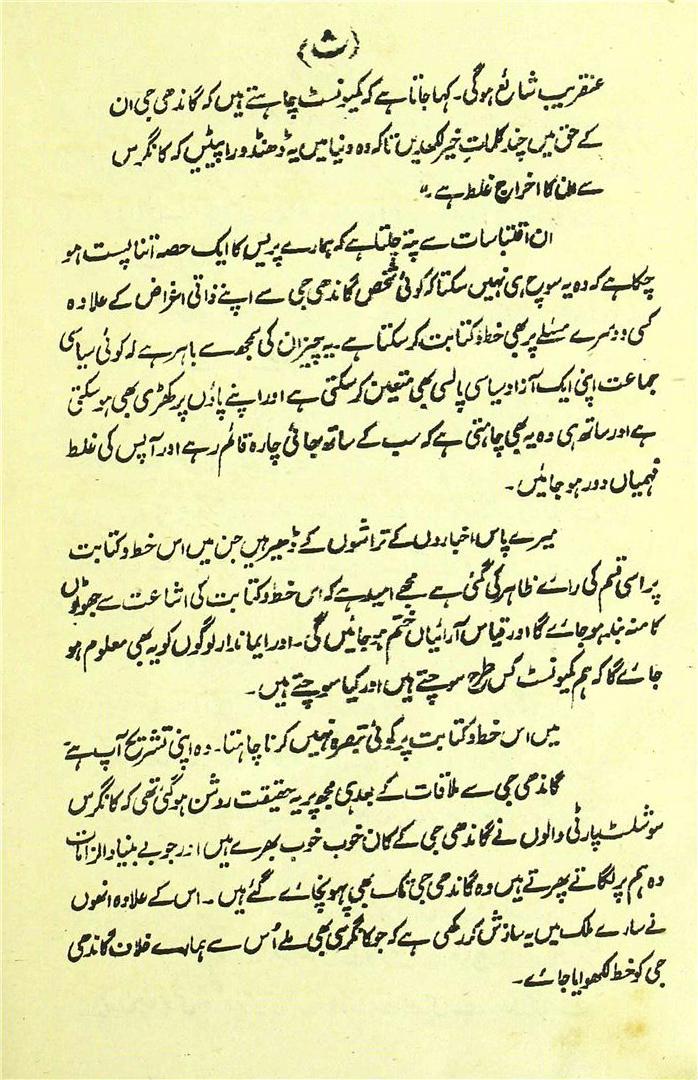 (ث)
عنقریب شائع ہوگی۔ کہا جاتا ہے کہ کمیونسٹ چاہتے ہیں کہ گاندھی جی ان
کے حق میں چند کلمات خیر لکھدیں تاکہ وہ دنیا میں یہ ڈھنڈورا پیٹیں کہ کانگرس
سے ان کا اخراج غلط ہے۔"
ان اقتباسات سے پتہ چلتا ہے کہ ہمارے پریس کا ایک حصہ اتنا پست ہو
چکا ہے کہ وہ یہ سوچ ہی نہیں سکتا کہ کوئی شخص گاندھی جی سے اپنے ذاتی اغراض کے علاوہ
کسی دوسرے مسئلے پر بھی خط و کتابت کر سکتا ہے۔ یہ چیز ان کی سمجھ سے باہر ہے کہ کوئی سیاسی
جماعت اپنی ایک آزاد سیاسی پالسی بھی متعین کر سکتی ہے اور اپنے پاؤں پر کھڑی بھی ہو سکتی
ہے اور ساتھ ہی وہ یہ بھی چاہتی ہے کہ سب کے ساتھ بھائی چارہ قائم رہے اور آپس کی غلط
فہمیاں دور ہو جائیں۔
میرے پاس اخباروں کے تراشوں کے ڈھیر ہیں جن میں اس خط و کتابت
پر اسی قسم کی رائے ظاہر کی گئی ہے مجھے امید ہے کہ اس خط و کتابت کی اشاعت سے جھوٹوں
کا منہ بند ہو جائے گا اور قیاس آرائیاں ختم ہو جائیں گی۔ اور ایماندار لوگوں کو یہ بھی معلوم ہو
جائے گا کہ ہم کمیونسٹ کس طرح سوچتے ہیں اور کیا سوچتے ہیں۔
میں اس خط و کتابت پر کوئی تبصرہ نہیں کرنا چاہتا۔ وہ اپنی تشریح آپ ہے
گاندھی جی سے ملاقات کے بعد ہی مجھ پر یہ حقیقت روشن ہو گئی تھی کہ کانگرس
سوشلسٹ پارٹی والوں نے گاندھی جی کے کان خوب خوب بھرے ہیں اور جو بے بنیاد الزامات
وہ ہم پر لگاتے پھرتے ہیں وہ گاندھی جی تک بھی پہونچائے گئے ہیں۔ اس کے علاوہ انھوں
نے سارے ملک میں یہ سازش کر رکھی ہے کہ جو کانگرسی بھی ملے اُس سے ہمارے خلاف گاندھی
جی کو خط لکھوایا جائے۔